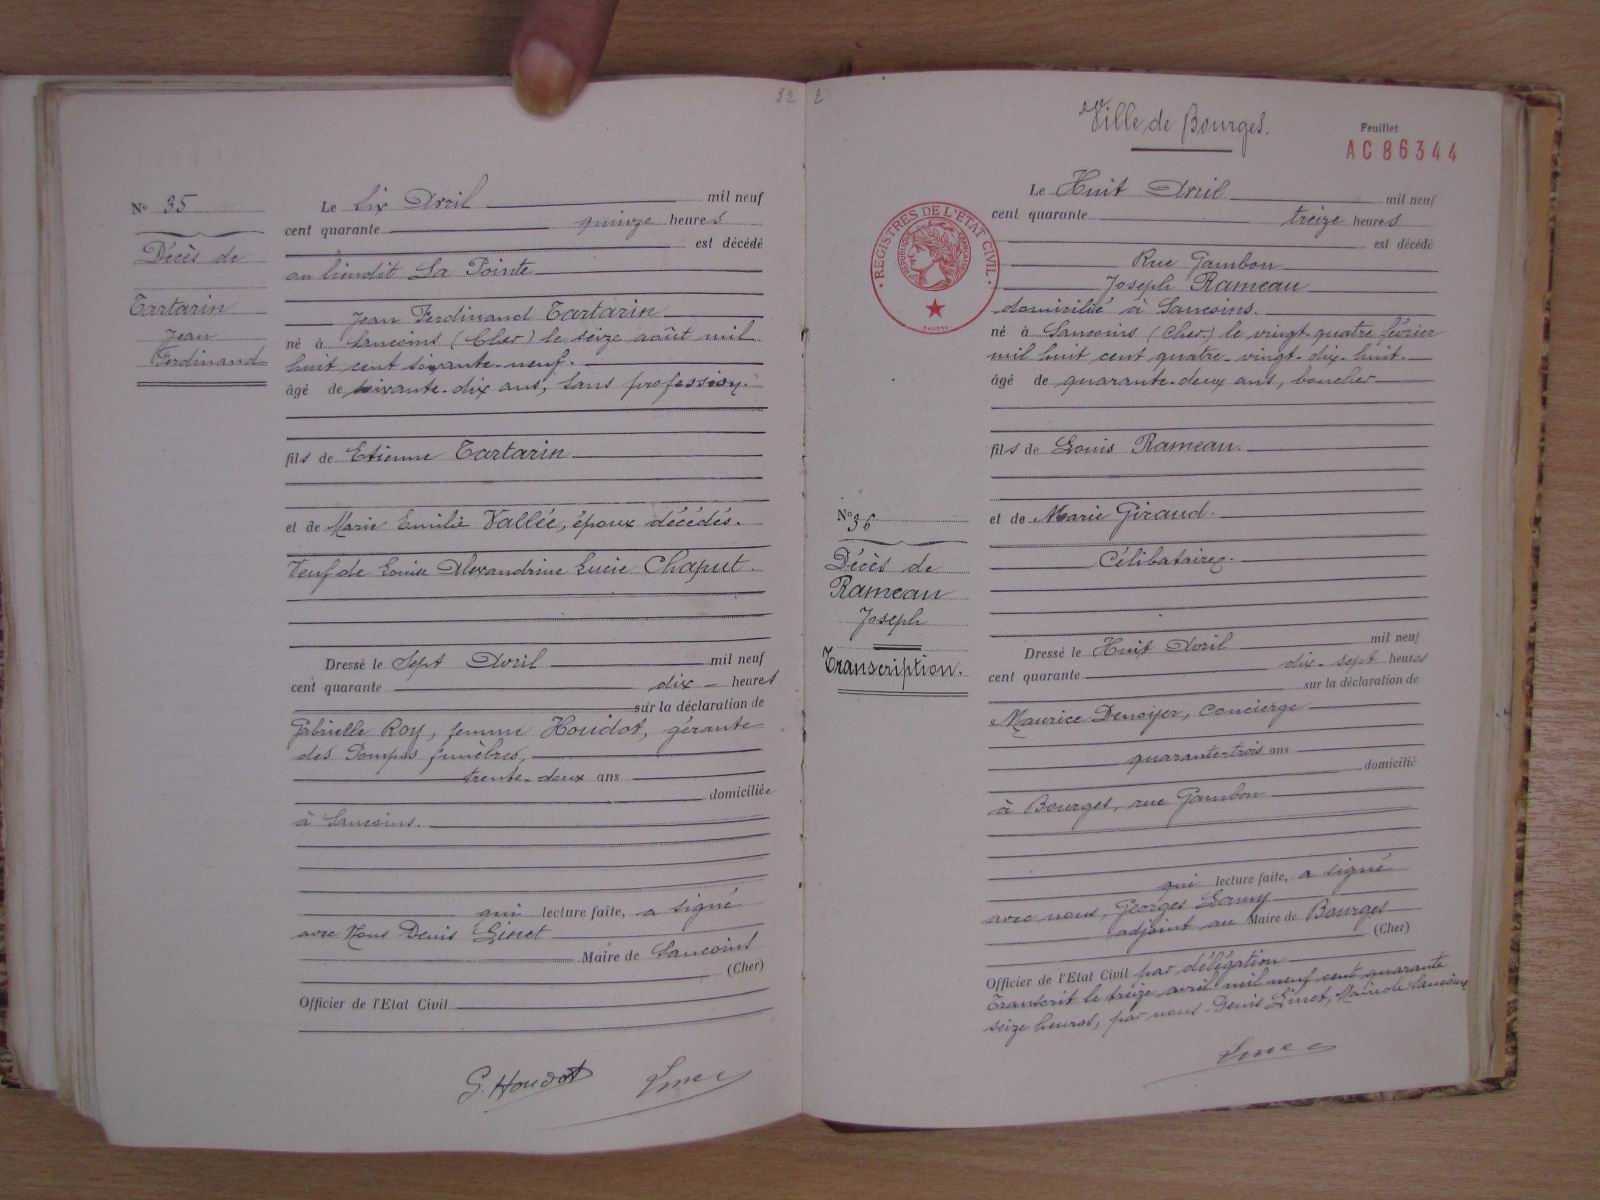 82
Nº 35
Décès de
Tartarin
Jean
Ferdinand
Le Six Avril mil neuf
cent quarante quinze heures
est décédé
au lieudit La Pointe
Jean Ferdinand Tartarin
né à Sancoins (Cher) le seize août mil
huit cent soixante-neuf.
âgé de soixante-dix ans, sans profession.
fils de Etienne Tartarin
et de Marie Emilie Vallée, époux décédés.
Veuf de Louise Alexandrine Lucie Chaput.
Dressé le Sept Avril mil neuf
cent quarante dix heures
sur la déclaration de
Gabrielle Roy, femme Houdot, gérante
des Pompes funèbres,
trente-deux ans
domiciliée
à Sancoins.
qui lecture faite, a signé
avec Nous Denis Linet
Maire de Sancoins
(Cher)
Officier de l'Etat Civil
G. Houdot Linet
2
Ville de Bourges.
Feuillet
AC 86344
REGISTRES DE L'ETAT CIVIL
REPUBLIQUE FRANÇAISE
Nº 36
Décès de
Rameau
Joseph
Transcription.
Le Huit Avril mil neuf
cent quarante treize heures
est décédé
Rue Gambon
Joseph Rameau
domicilié à Sancoins.
né à Sancoins (Cher) le vingt-quatre février
mil huit cent quatre-vingt-dix-huit.
âgé de quarante-deux ans, boucher
fils de Louis Rameau.
et de Marie Giraud.
Célibataire.
Dressé le Huit Avril mil neuf
cent quarante dix-sept heures
sur la déclaration de
Maurice Denoyer, concierge
quarante-trois ans
domicilié
à Bourges, rue Gambon
qui lecture faite, a signé
avec nous, Georges
adjoint au Maire de Bourges
(Cher)
Officier de l'Etat Civil par délégation
Transcrit le treize avril mil neuf cent quarante
seize heures, par nous Denis Linet, Maire de Sancoins
Linet